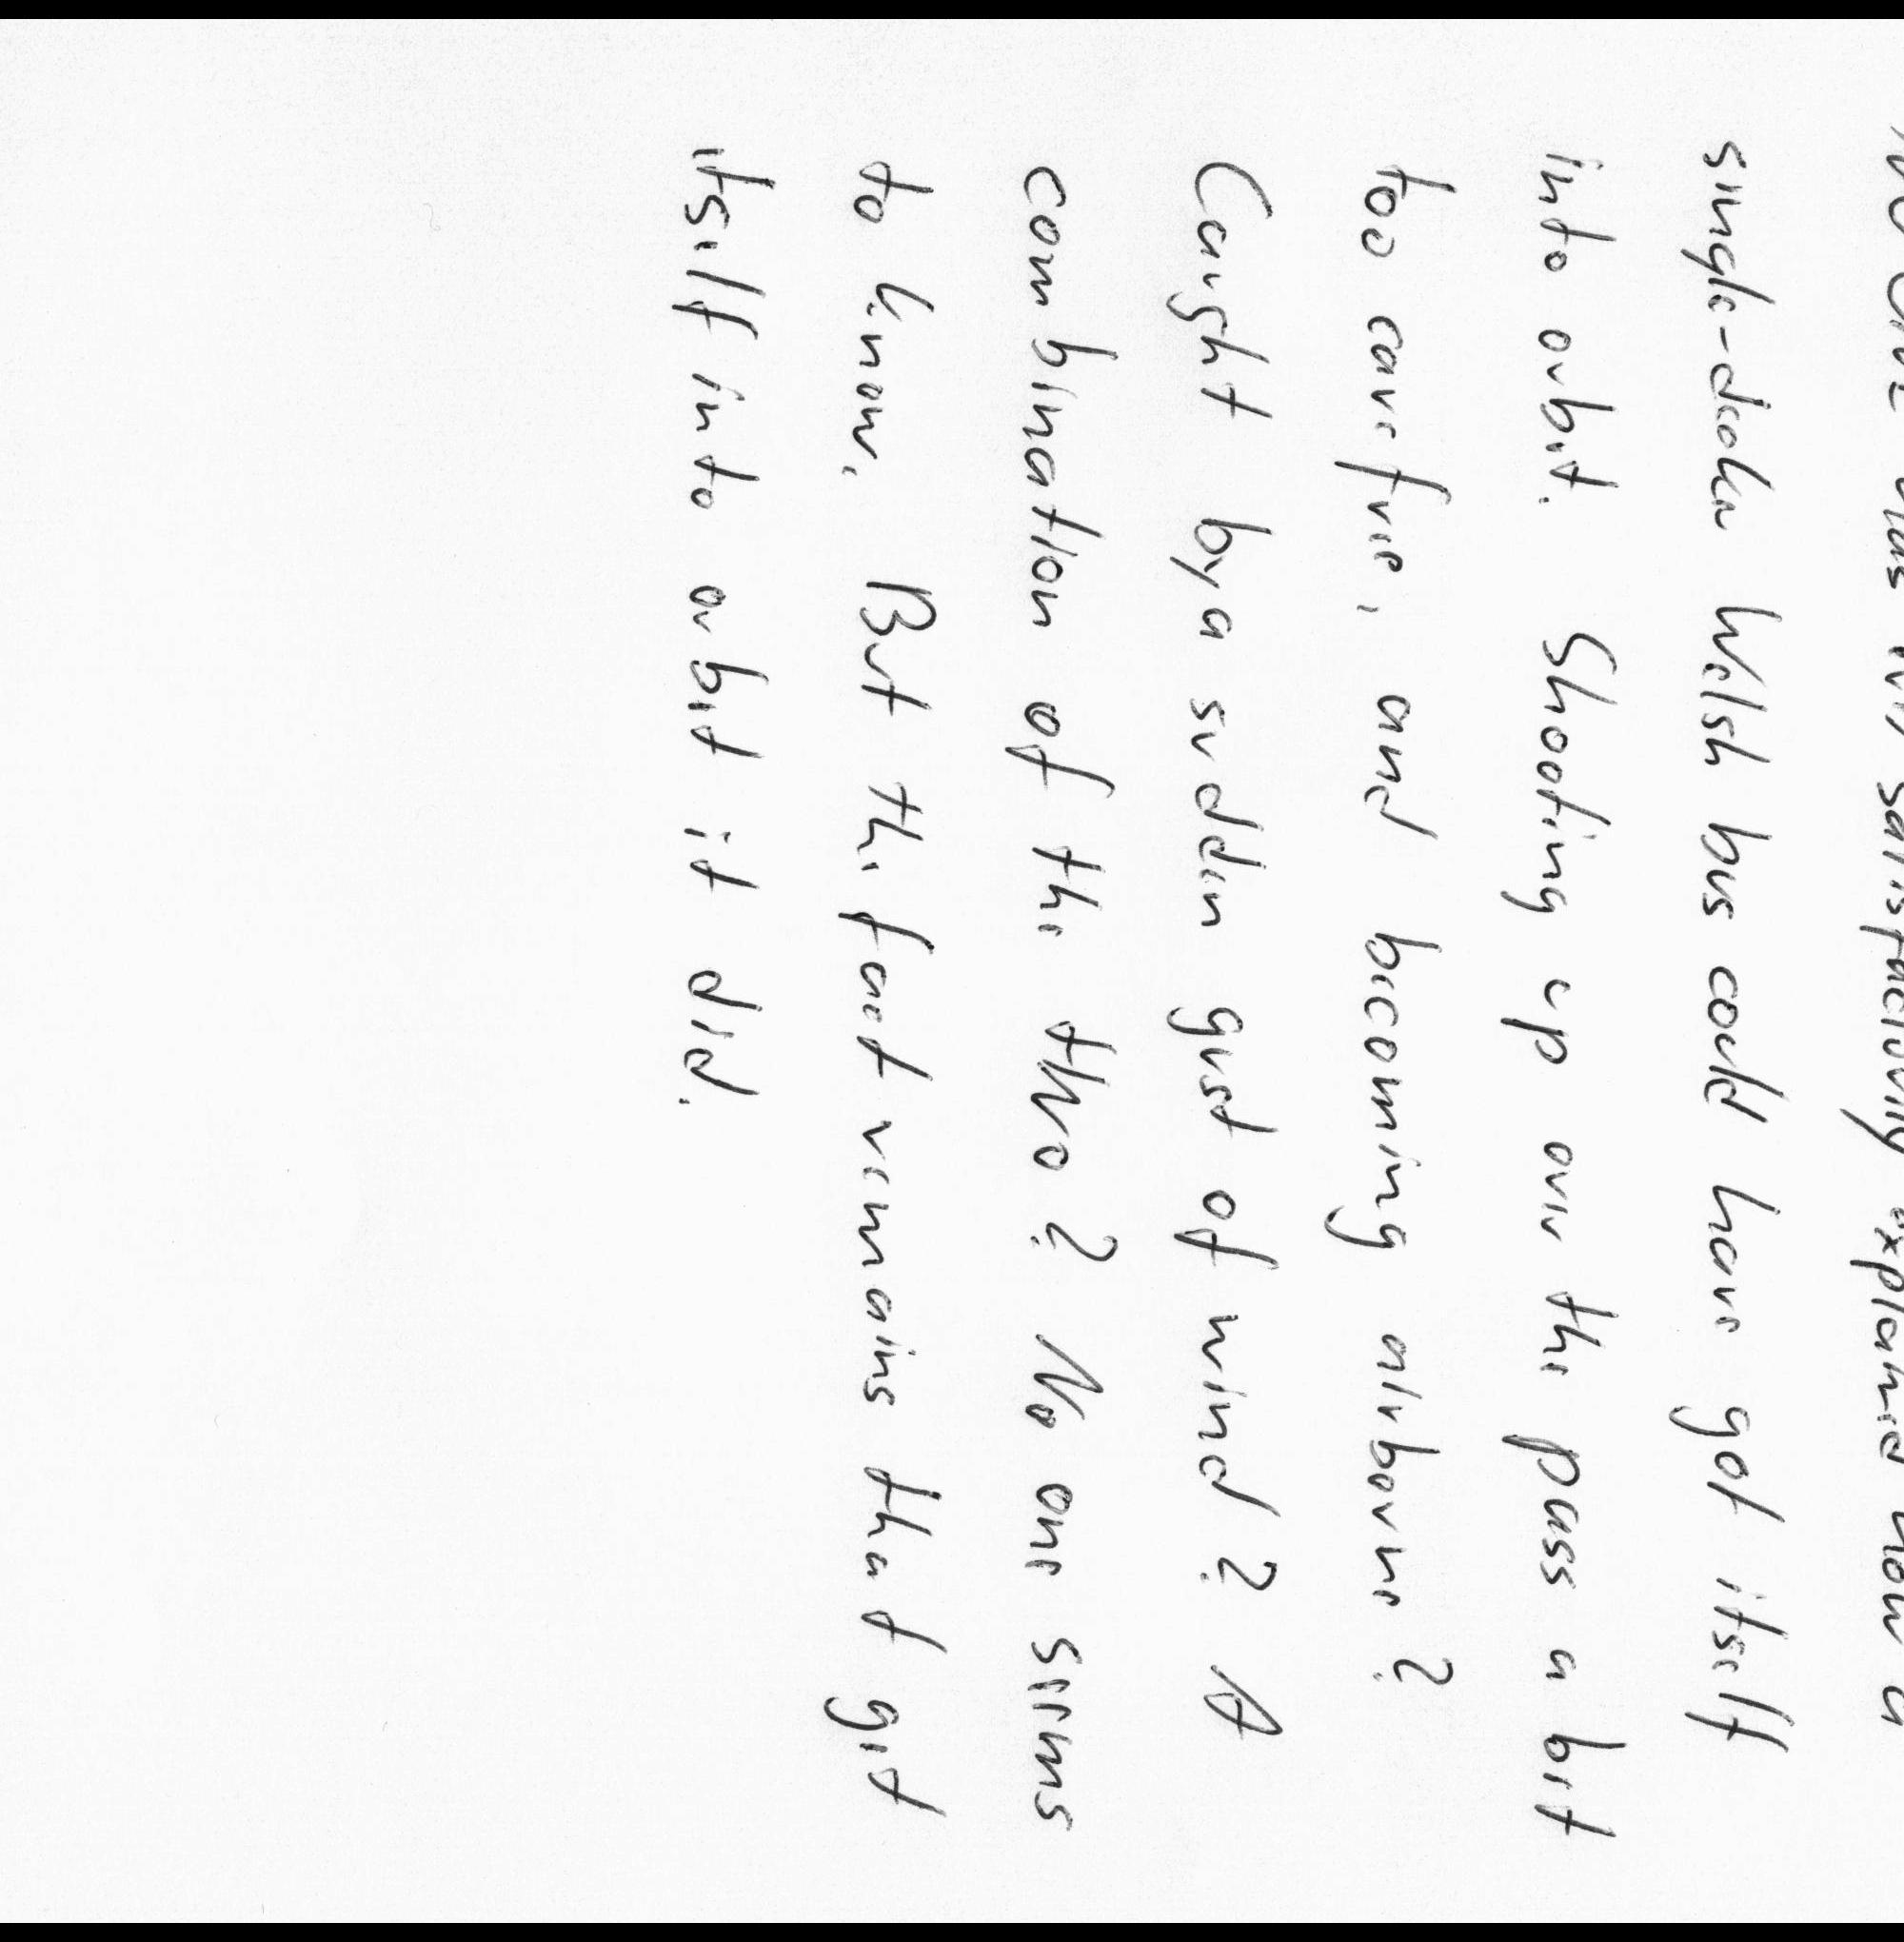 No one has ever satisfactorily explained how a
single-decker Welsh bus could have got itself
into orbit. Shooting up over the pass a bit
too carefree, and becoming airborne?
Caught by a sudden gust of wind? A
combination of the two? No one seems
to know. But the fact remains that git
itself into orbit it did.